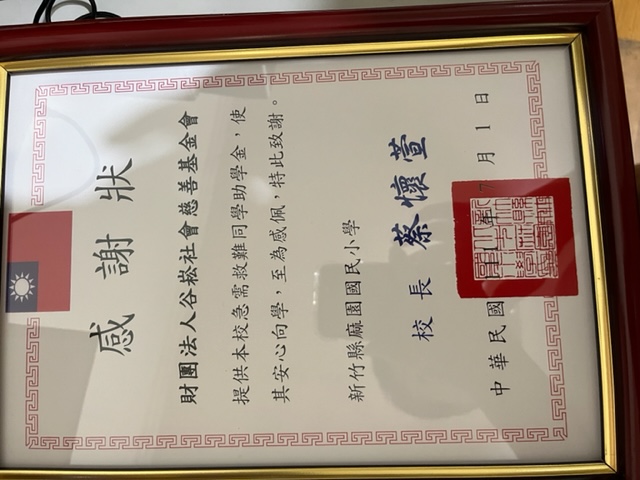 感謝狀
財團法人谷崧社會慈善基金會
提供本校急需救難同學助學金，使
其安心向學，至為感佩，特此致謝。
新竹縣麻園國民小學
校長 蔡懷萱
中華民國 年 7 月 1 日